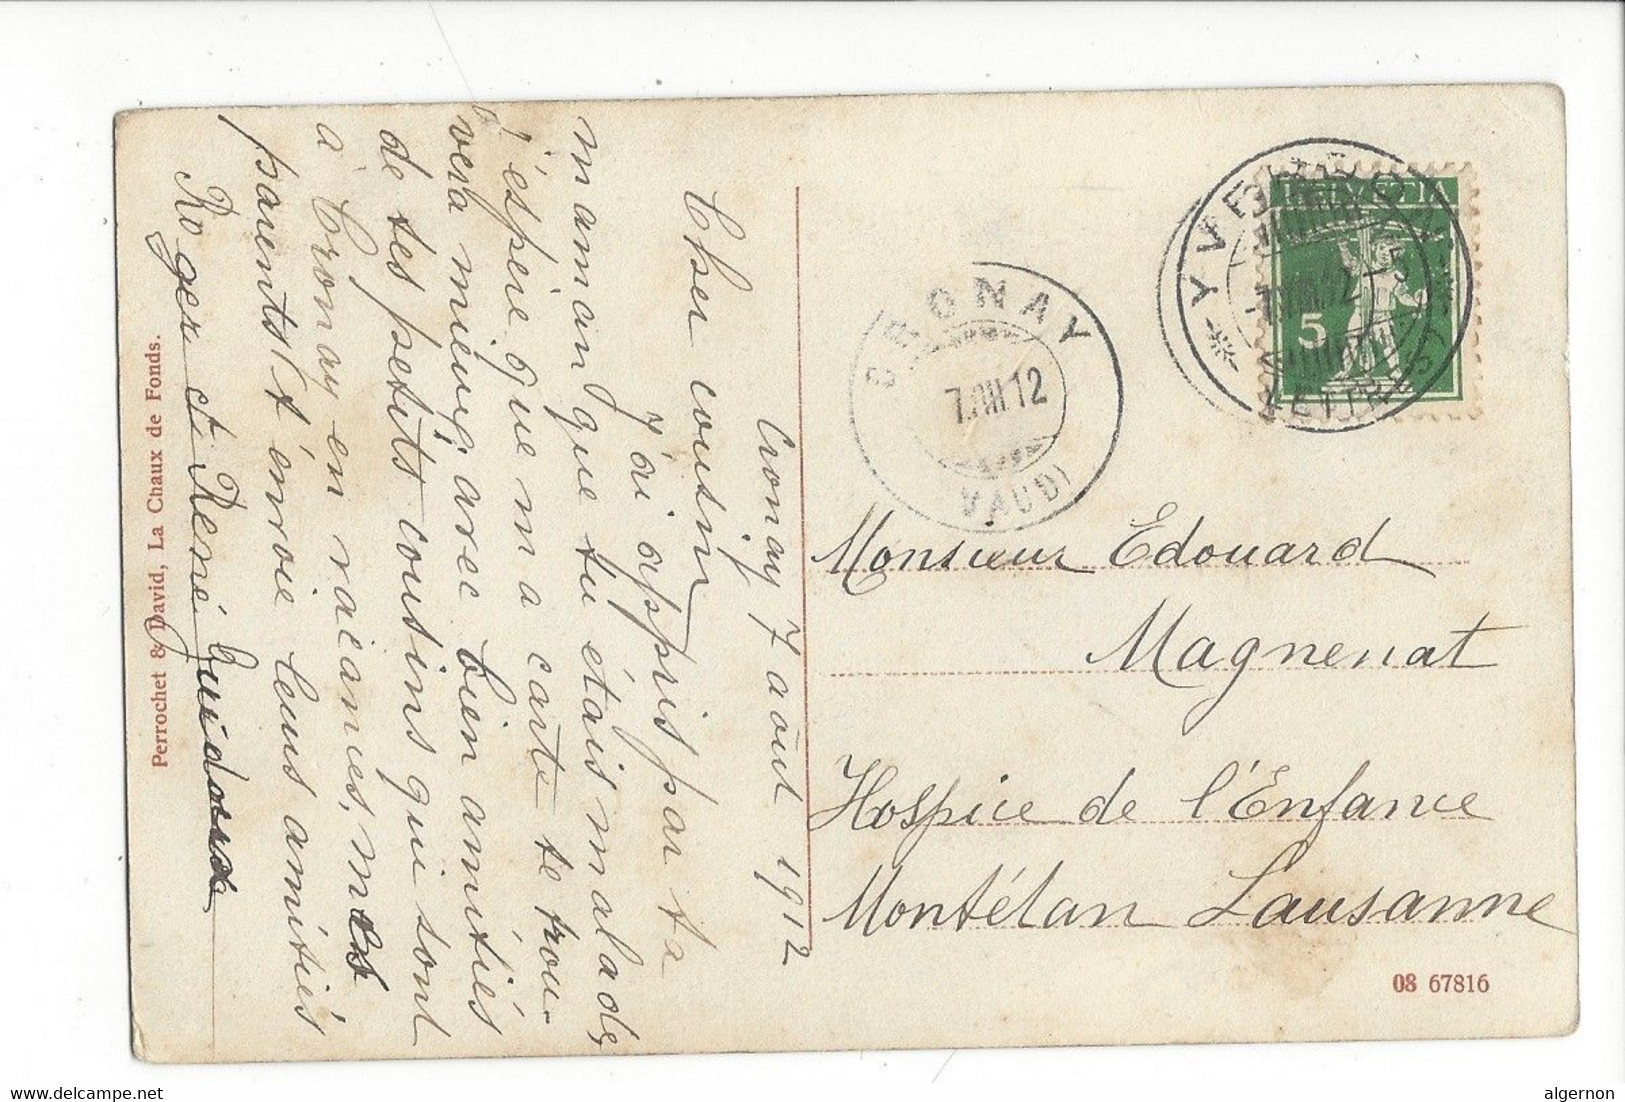 Cronay 7 août 1912
Cher cousin
J'ai appris par ta
maman que tu étais malade,
j'éspère que m a carte te trou-
vera mieux, avec bien amitiés
de tes petits cousins qui sont
à Cronay en vacances, mes
parents t'envoie leurs amitiés
Roger et René
Perrochet & David, La Chaux de Fonds.
CRONAY
7.VIII.12
(VAUD)
YVERDON
HELVETIA
5
Monsieur Edouard
Magnenat
Hospice de l'Enfance
Montétan Lausanne
08 67816
delcampe.net
algernon